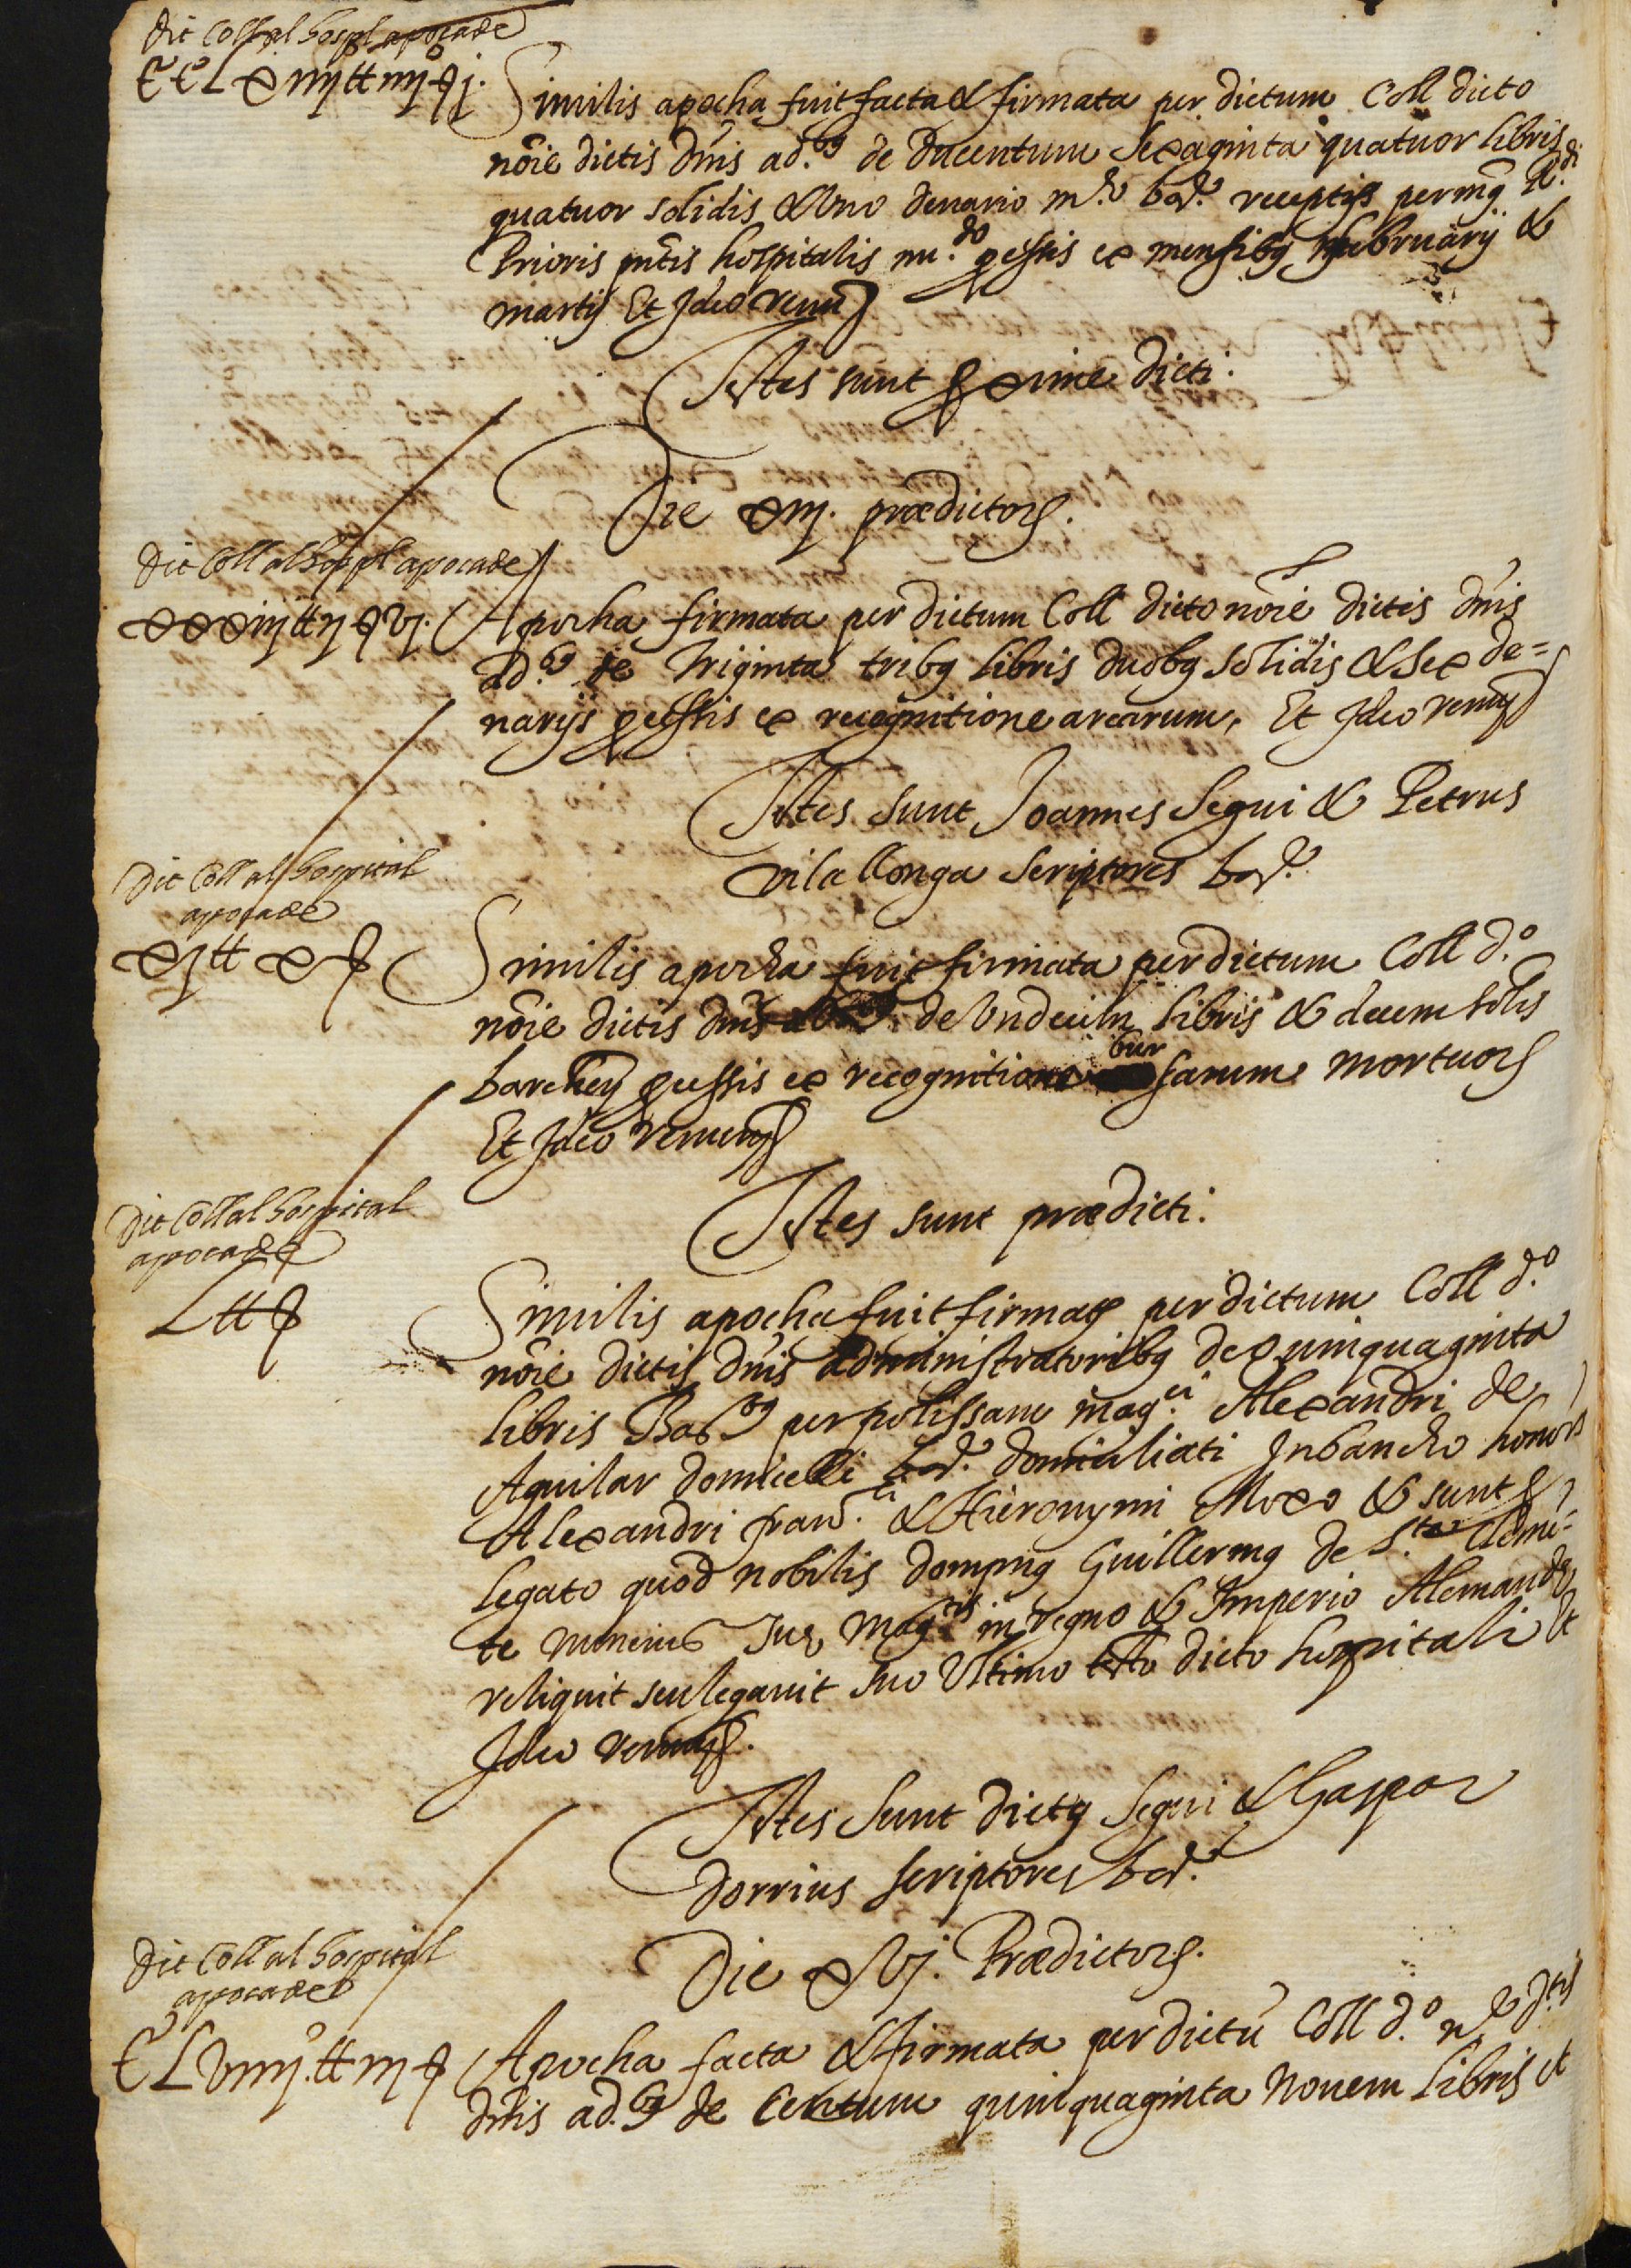 Dit Coll al hospl apoca de
CC LXiiij ħ iiij ẜ j.
Similis apocha fuit facta & firmata per dictum Coll dicto
nōīe dictis dn̄is ad.bȝ de Ducentum Sexaginta quatuor libris
quatuor solidis & Uno denario m.ta bar.e receptis per mȝ R.di
Prioris pn̄tis hospitalis mi.do ꝓcessis ex mensibȝ februarij &
martij Et Ideo renunȝ
Testes sunt proxime dicti.
Die xiij. prædictorȝ.
Dit Coll al hospl apoca de
xxxiij ħ ij ẜ vj.
Apocha firmata per dictum Coll dicto nōīe dictis dn̄is
ad.bȝ de triginta tribȝ libris duobȝ solidis & sex de=
narijs ꝓcessis ex recognitione arcarum, Et Ideo renunȝ
Testes sunt Joannes Segui & Petrus
vilallonga Scriptores bar.e
Dit Coll al hospital
apoca de
xj ħ x ẜ
Similis apocha fuit firmata per dictum Coll d.o
nōīe dictis dn̄is ad.bȝ de Undecim libris & decem solis
barchȝ ꝓcessis ex recognitione bursarum mortuorȝ
Et Ideo renunȝ
Testes sunt prædicti.
Dit Coll al hospital
apoca de
L ħ ẜ
Similis apocha fuit firmata per dictum Coll d.o
nōīe dictis dn̄is administratoribȝ de quinquaginta
libris Bar.bȝ per polissam mag.ci Alexandri de
Aguilar domicelli bar.e domiciliati In bancho honors
Alexandri &Hieronymi Moxo & sunt ꝓ
legato quod nobilis dompnȝ Guillermȝ de S.ta Clemē=
te nuncius suȩ mag.tis in regno & Imperio Alemandȩ
reliquit seu legauit suo Ultimo testo dicto hospitali et
Ideo renunȝ.
Testes Sunt dictȝ Segui & Gaspar
dorrius scriptores bar.e
Die xvj. Prædictorȝ.
Dit Coll al hospital
apoca de
C Lviiij. ħ iij ẜ
Apocha facta & firmata per dictū Coll d.o n.e d.tis
dn̄is ad.bȝ de Centum quinquaginta Nouem libris et